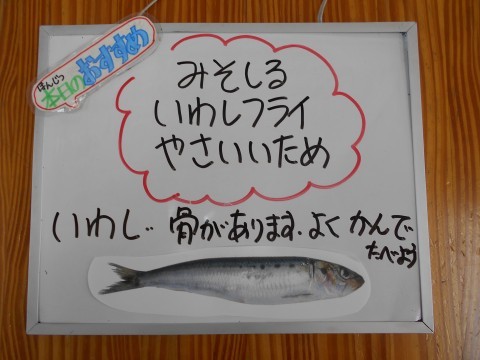 ほんじつ
本日のおすすめ
みそしる
いわしフライ
やさいいため
いわし‥ 骨があります。よく かんで
たべよう